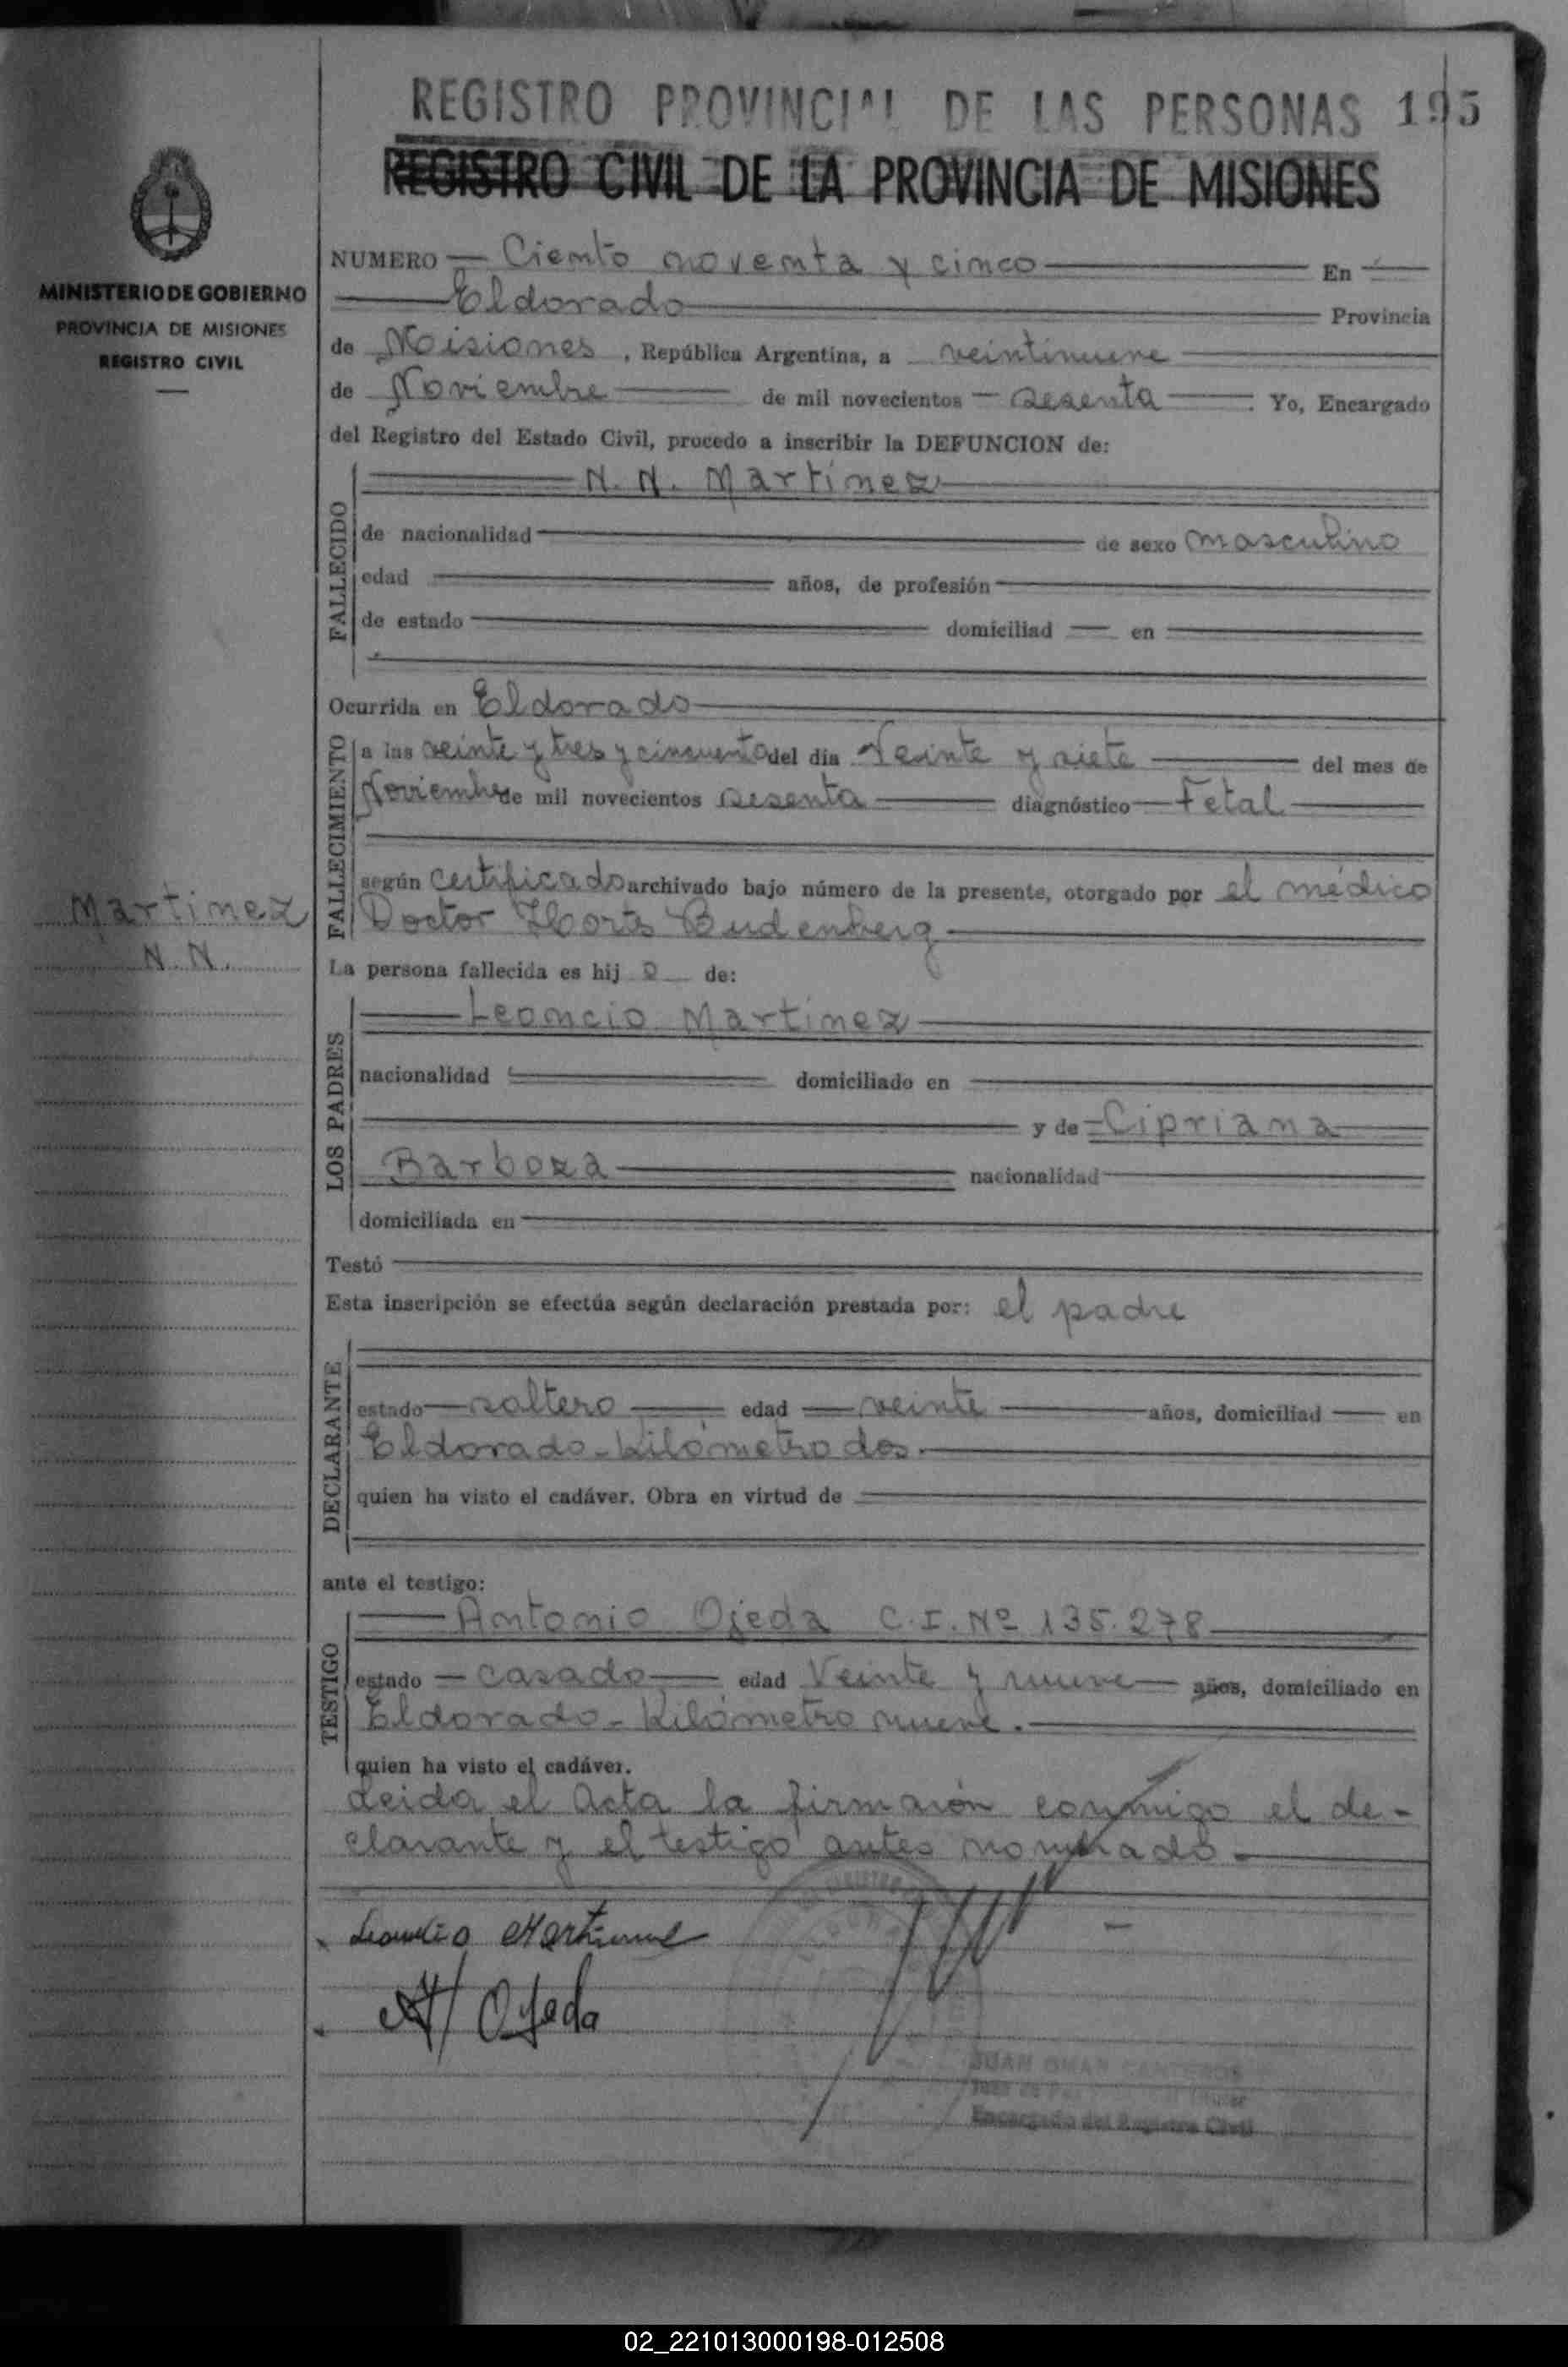 REGISTRO PROVINCIAL DE LAS PERSONAS 195
REGISTRO CIVIL DE LA PROVINCIA DE MISIONES
MINISTERIO DE GOBIERNO
PROVINCIA DE MISIONES
REGISTRO CIVIL
NUMERO Ciento noventa y cinco En
Eldorado Provincia
de Misiones, República Argentina, a veintinueve
de Noviembre de mil novecientos sesenta Yo, Encargado
del Registro del Estado Civil, procedo a inscribir la DEFUNCION de:
FALLECIDO
N. N. Martinez
de nacionalidad de sexo masculino
edad años, de profesión
de estado domiciliad en
Ocurrida en Eldorado
FALLECIMIENTO
a las veinte y tres y cincuenta del día Veinte y siete del mes de
Noviembre de mil novecientos sesenta diagnóstico Fetal
según certificado archivado bajo número de la presente, otorgado por el médico
Doctor Horts Budenberg
Martinez
N. N.
La persona fallecida es hij o de:
LOS PADRES
Leoncio Martinez
nacionalidad domiciliado en
y de Cipriana
Barboza nacionalidad
domiciliada en
Testó
Esta inscripción se efectúa según declaración prestada por: el padre
DECLARANTE
estado soltero edad veinte años, domiciliad en
Eldorado - Kilómetro dos.
quien ha visto el cadáver. Obra en virtud de
ante el testigo:
TESTIGO
Antonio Ojeda C.I. Nº 135.278
estado casado edad Veinte y nueve años, domiciliado en
Eldorado - Kilómetro nueve.
quien ha visto el cadáver.
Leida el Acta la firmarón conmigo el de-
clarante y el testigo antes nombrado.
Leoncio Martinez
A Ojeda
JUAN OMAR CANTEROS
Encargado del Registro Civil
02_221013000198-012508